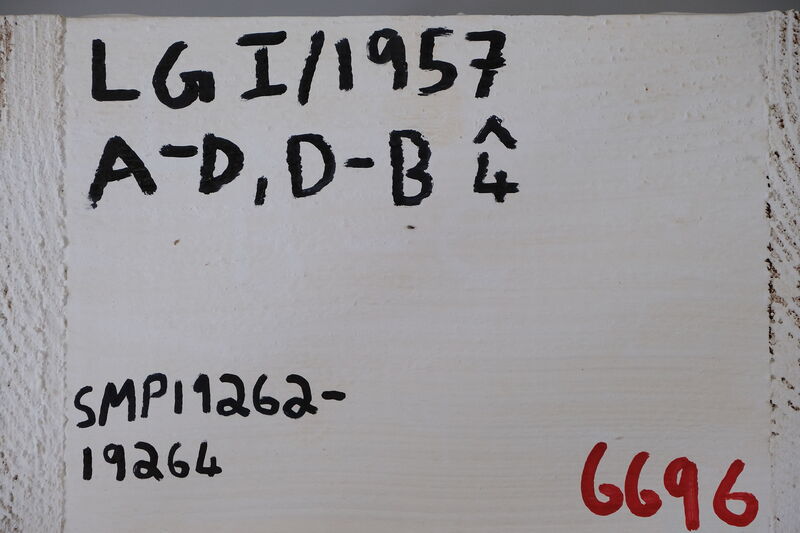 LG I/1957
A-D, D-B 4̂
SMP19262-
19264
6696